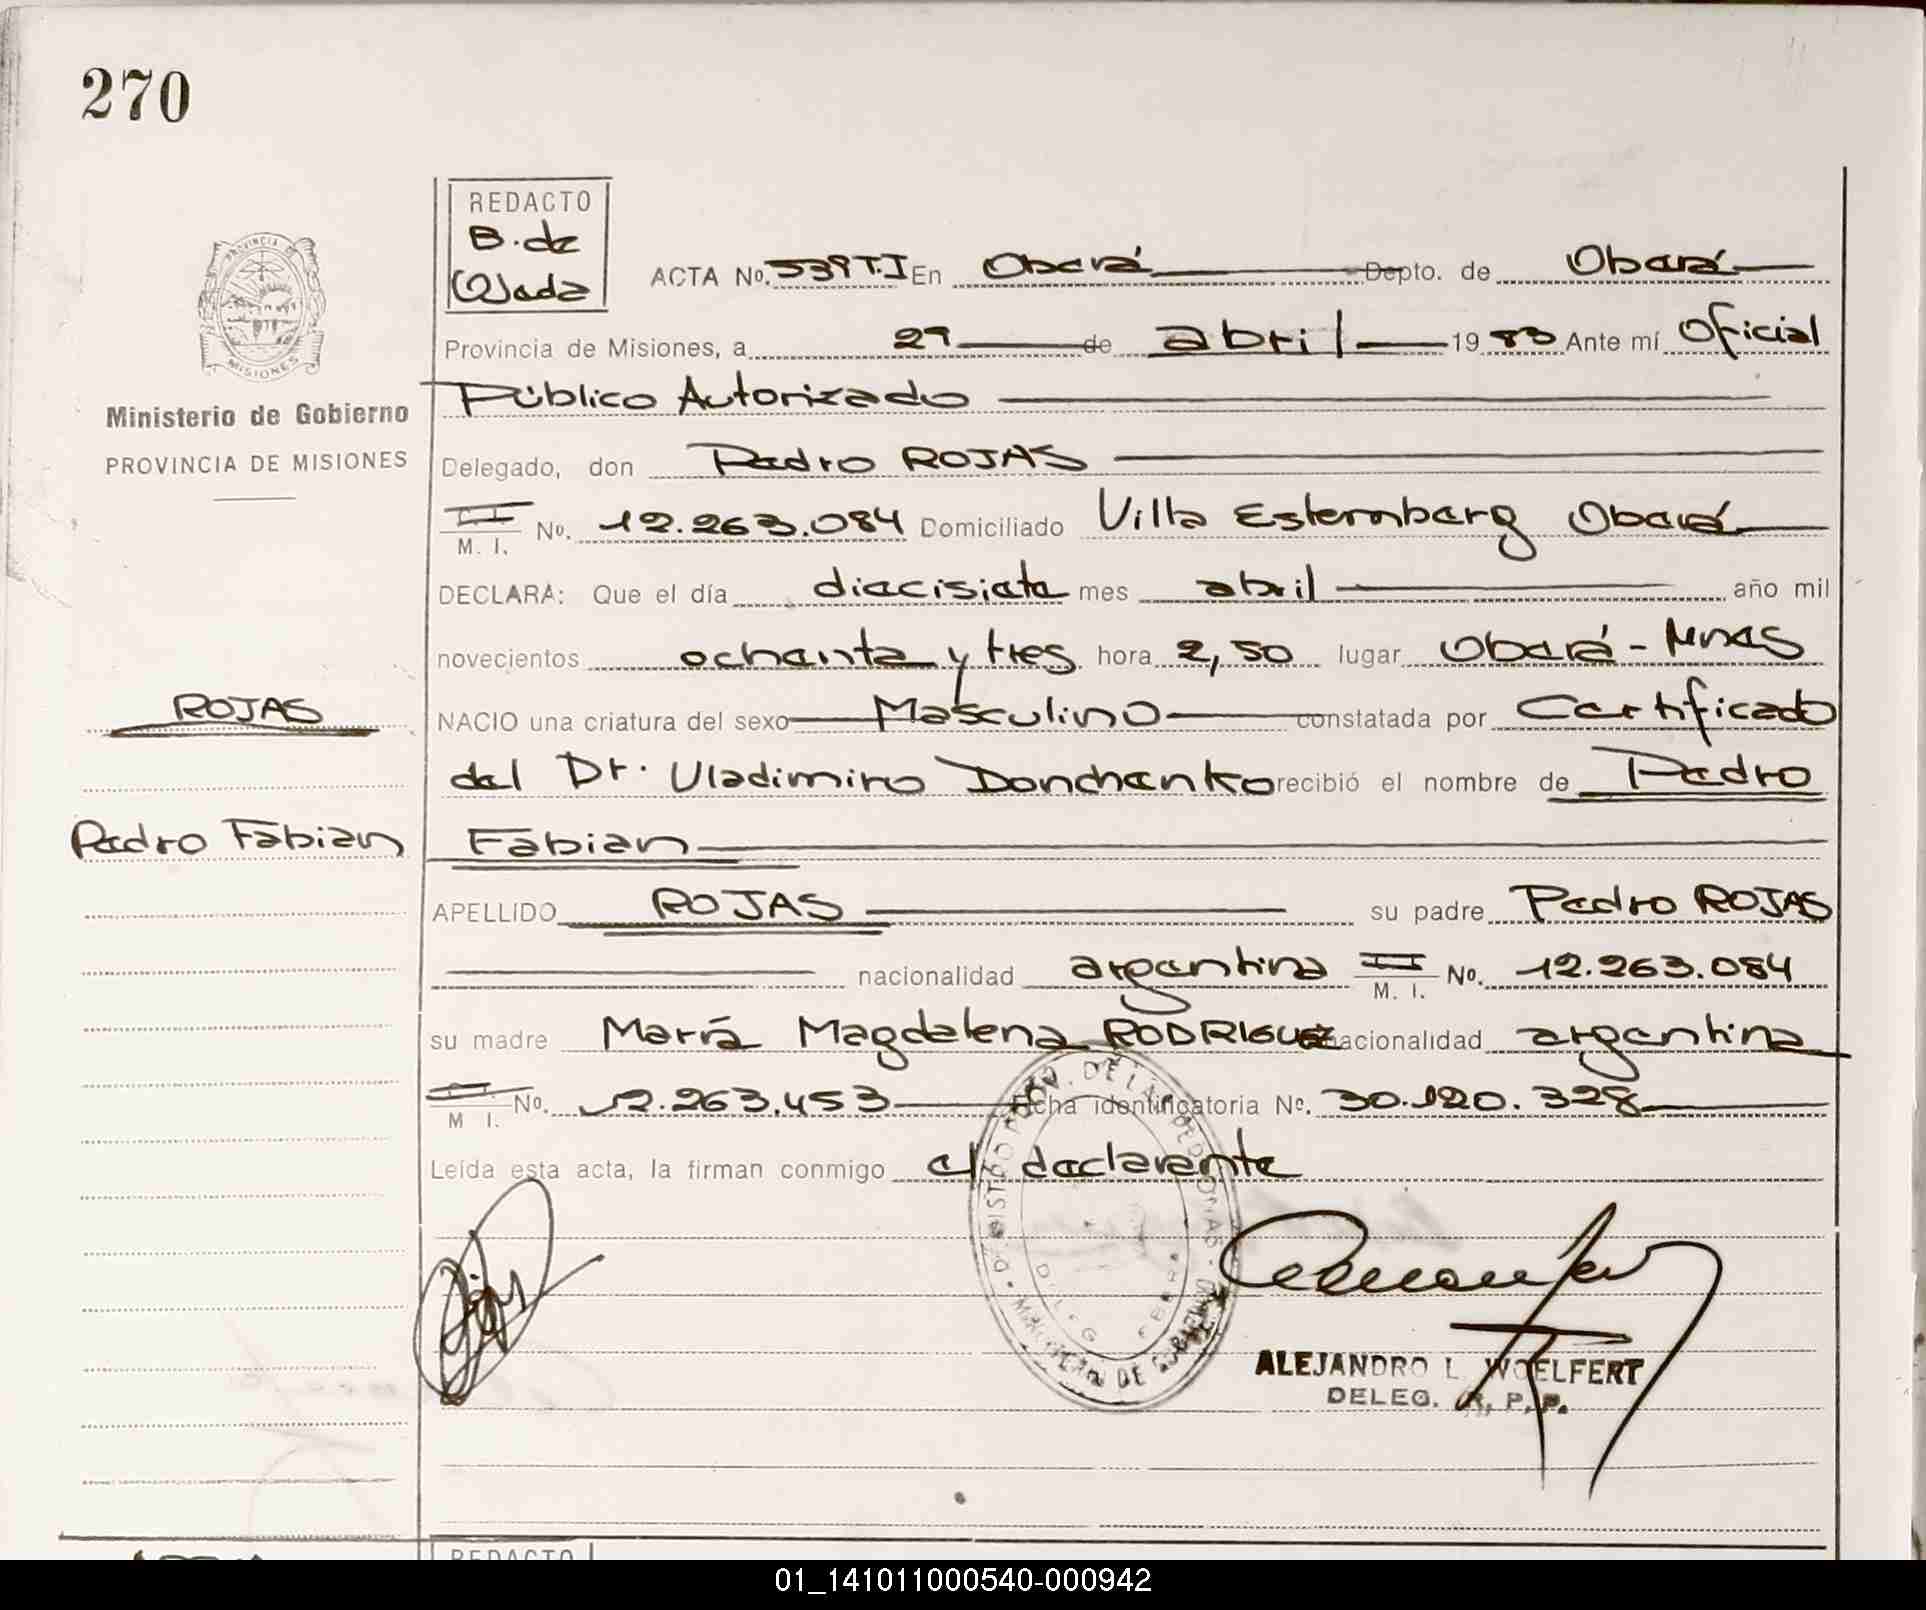 270
REDACTO
B. de
Ojeda
ACTA No. 539 T.I En Oberá Depto. de Oberá
Provincia de Misiones, a 29 de abril 1983 Ante mí Oficial
Público Autorizado
Ministerio de Gobierno
PROVINCIA DE MISIONES
Delegado, don Pedro ROJAS
M. I. No. 12.263.084 Domiciliado Villa Estemberg Oberá
DECLARA: Que el día diecisiete mes abril año mil
novecientos ochenta y tres hora 2,50 lugar Oberá - Mnes
ROJAS
NACIO una criatura del sexo Masculino constatada por Certificado
del Dr. Vladimiro Donchenko recibió el nombre de Pedro
Pedro Fabian
Fabian
APELLIDO ROJAS su padre Pedro ROJAS
nacionalidad argentina M. I. No. 12.263.084
su madre María Magdalena RODRIGUEZ nacionalidad argentina
M I. No. 12.263.453 Ficha identificatoria No. 30.120.328
Leída esta acta, la firman conmigo el declarente
ALEJANDRO L. WOELFERT
DELEG. R. P. P.
REDACTO
01_141011000540-000942